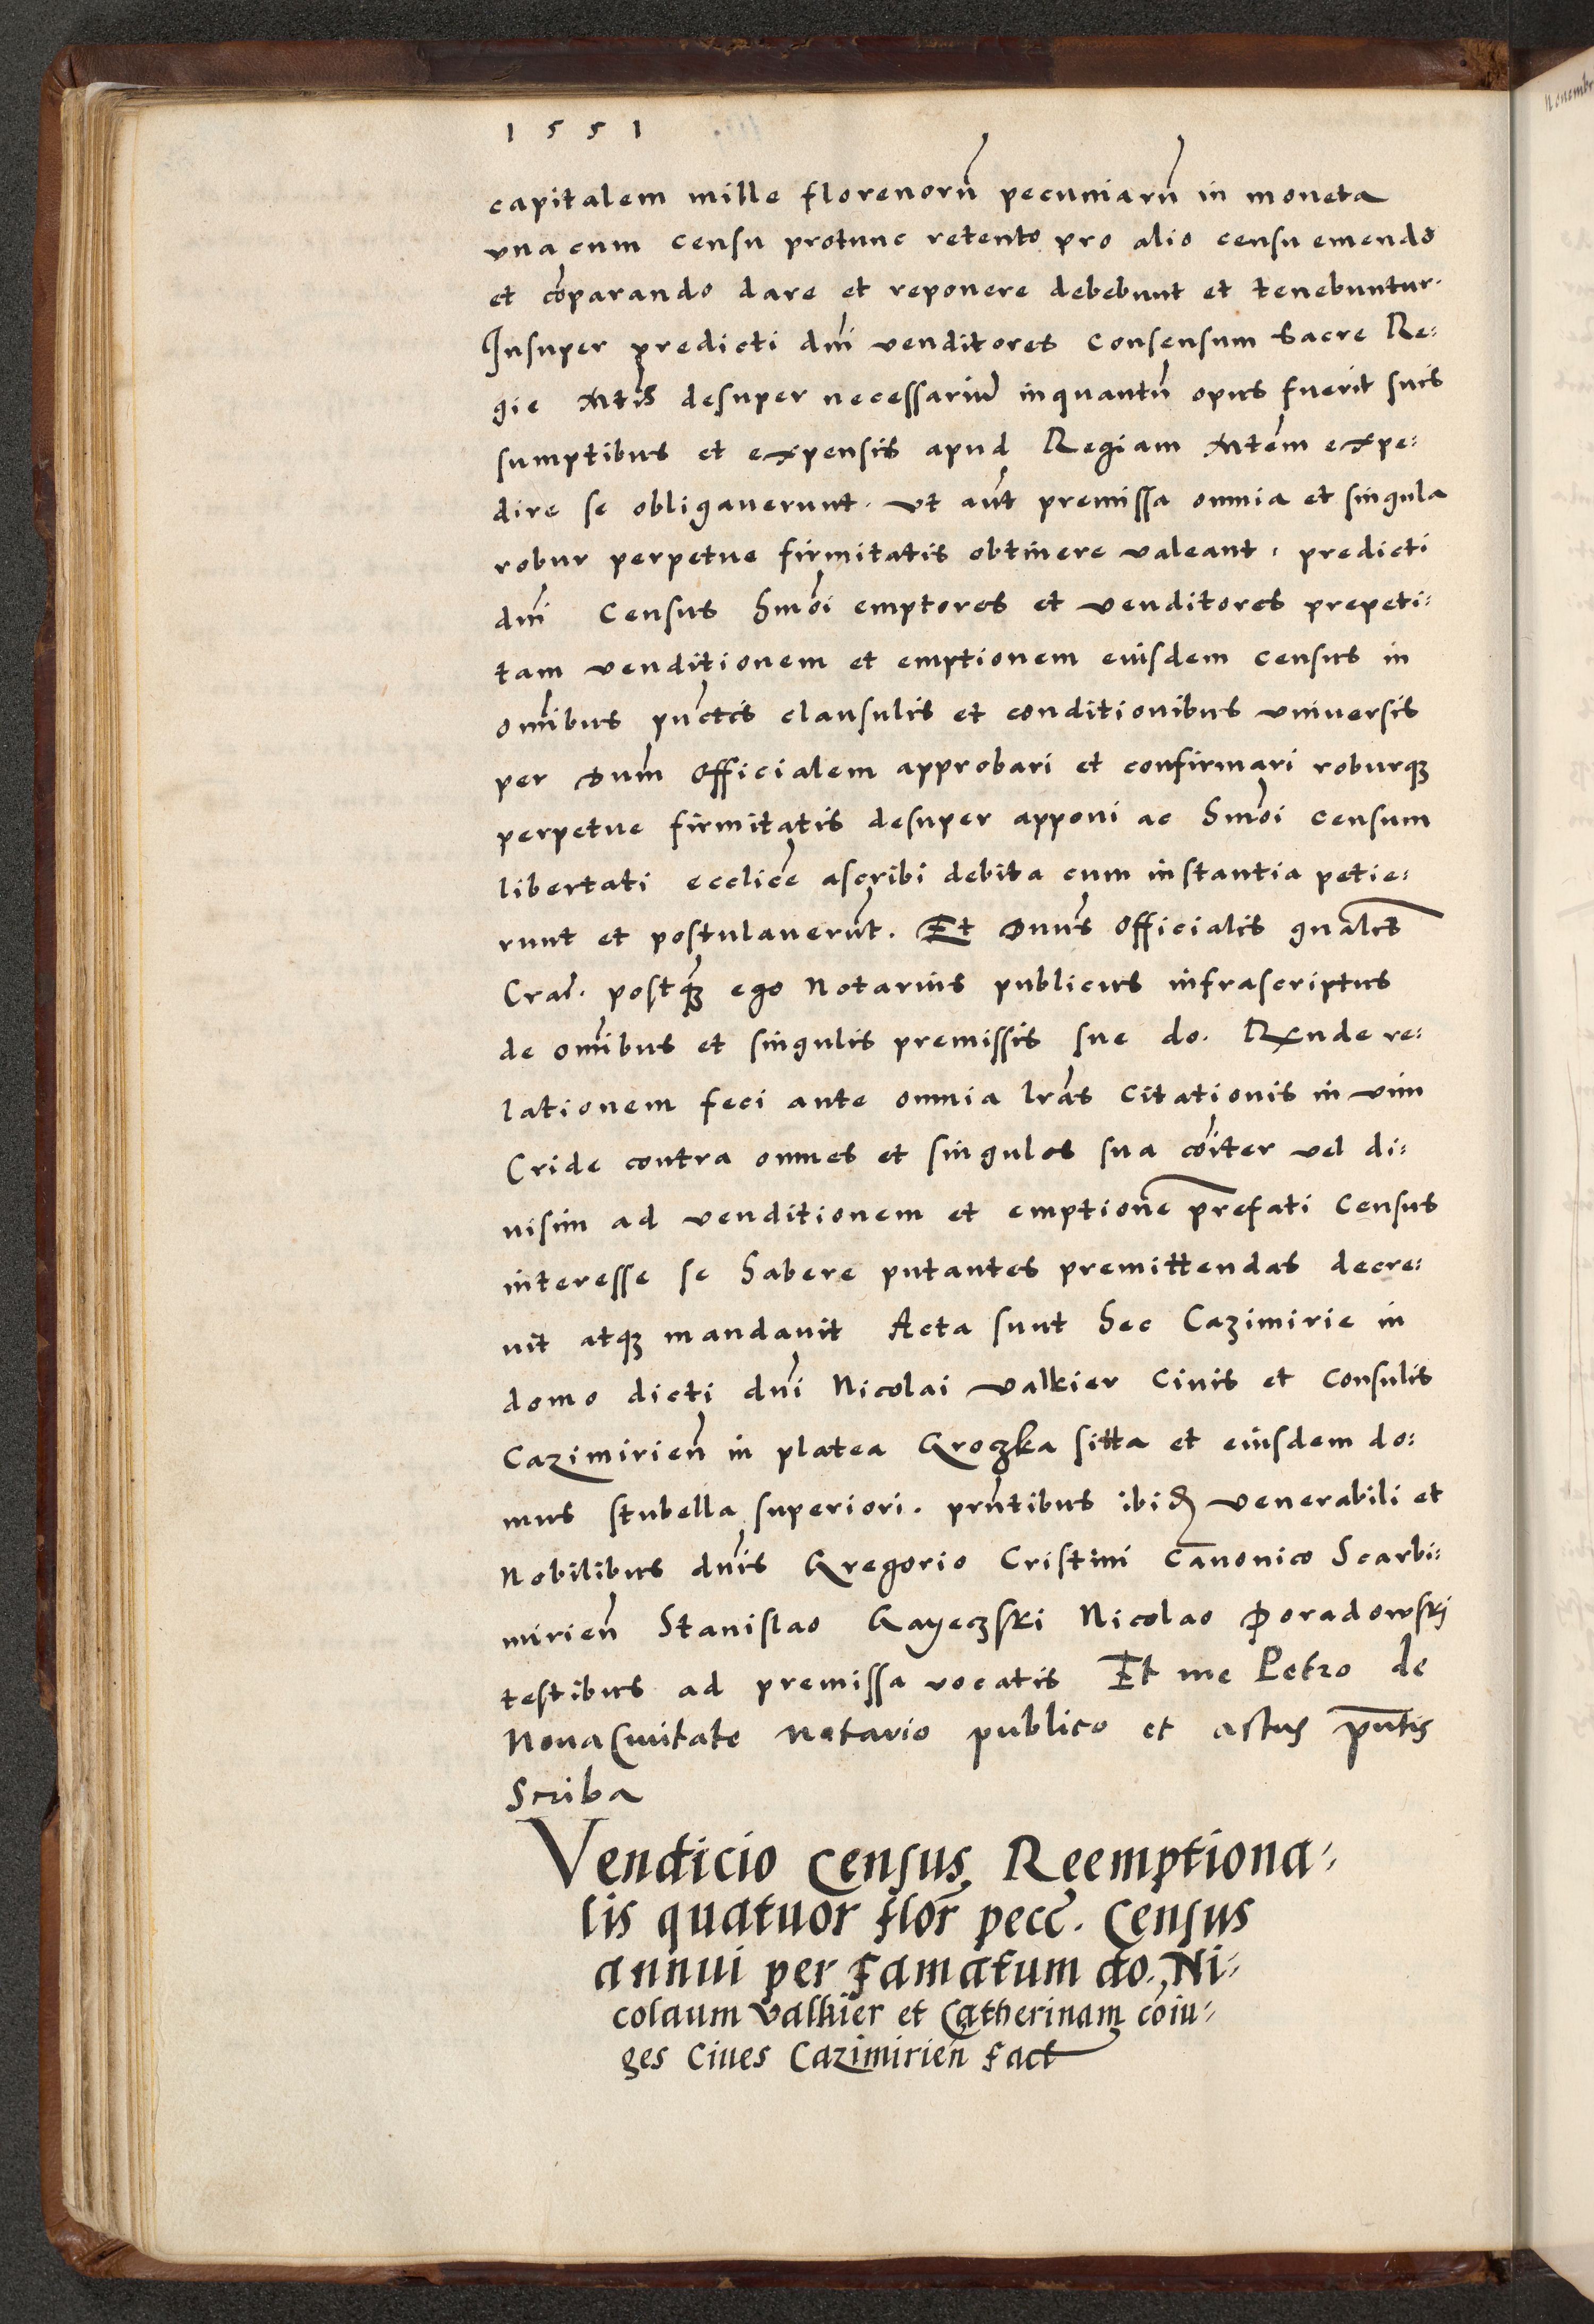 1551
capitalem mille florenorū pecuniarū in moneta
vna cum censu protunc retento pro alio censu emendo
et cōparando dare et reponere debebunt et tenebuntur.
Insuper predicti dn̄i venditores consensum Sacre Re:
gie Mtis desuper necessariū inquantū opus fuerit suis
sumptibus et expensis apud Regiam Mtēm expe:
dire se obligauerunt. Vt aūt premissa omnia et singula
robur perpetue firmitatis obtinere valeant, predicti
dn̄i Census hmōi emptores et venditores prepeti:
tam venditionem et emptionem eiusdem census in
om̄ibus pūctis clausulis et conditionibus vniuersis
per Dnūm Officialem approbari et confirmari roburqȝ
perpetue firmitatis desuper apponi ac hmōi censum
libertati eccliēe ascribi debita cum instantia petie:
runt et postulauerūt. Et Dnūs Officialis gnālis
Crac̄. postqȝ ego Notarius publicus infrascriptus
de om̄ibus et singulis premissis sue do. Rxnde re:
lationem feci ante omnia lrās Citationis in vim
Cride contra omnes et singulos sua cōiter vel di:
uisim ad venditionem et emptionē prefati Census
interesse se habere putantes premittendas decre:
uit atqȝ mandauit Acta sunt hec Cazimirie in
domo dicti dn̄i Nicolai Valkier Ciuis et Consulis
Cazimirien̄ in platea Groczka sitta et eiusdem do:
mus stubella superiori. prn̄tibus ibid̄ Venerabili et
Nobilibus dn̄is Gregorio Cristini Cānonico Scarbi:
mirien̄ Stanislao Gayeczski Nicolao Poradowskj
testibus ad premissa vocatis Et me Petro de
NouaCiuitate notario publico et actus pn̄tis
Scriba
Vendicio Census Reemptiona-
lis quatuor flor̄ pecc̄. Census
annui per famatum do. Ni-
colaum Valkier et Catherinam cōiu-
ges Ciues Cazimirien̄ fact